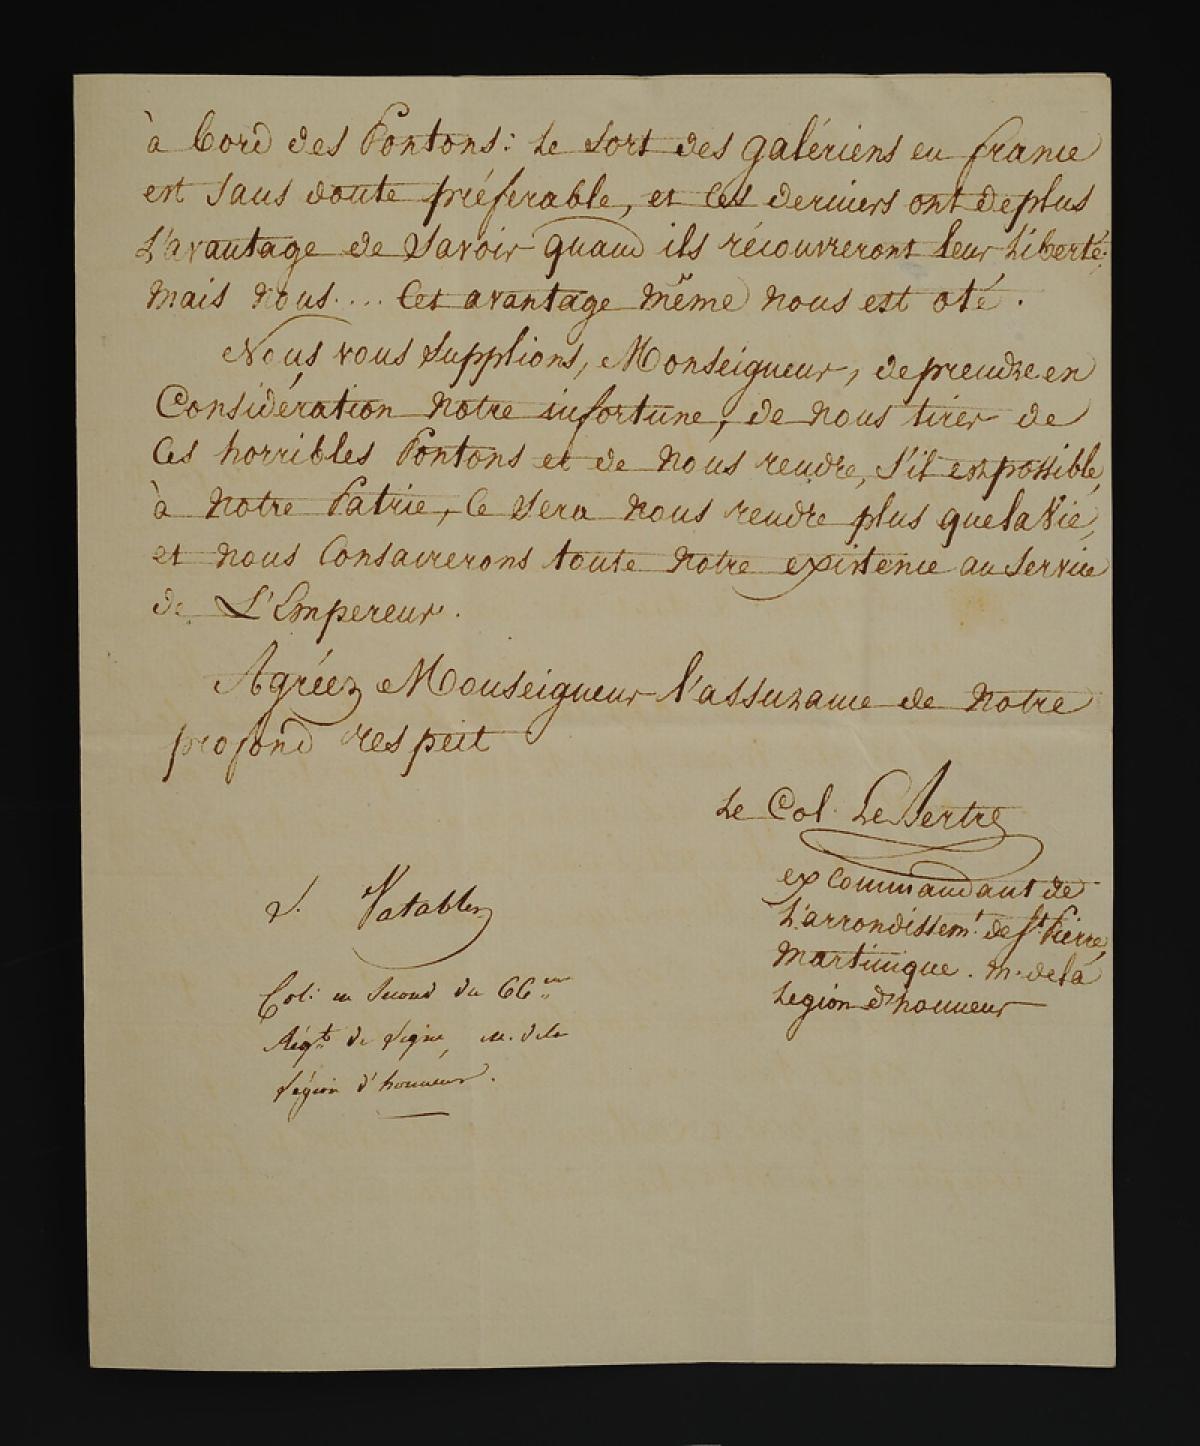 à bord des Pontons: Le Sort des galériens en france
est sans doute préferable, et ces derniers ont deplus
L'avantage de Savoir quand ils récouvreront leur Liberté:
Mais nous.... Cet avantage même nous est oté.
Nous vous Supplions, Monseigneur, deprendre en
Considération Notre infortune, de nous tirer de
Ces horribles Pontons et de nous rendre, S'il est possible,
à Notre Patrie, Ce Sera nous rendre plus quela Vie,
et nous Consacrerons toute Notre existence au Service
de L'Empereur.
Agréez Monseigneur l'assurance de Notre
profond respect
Le Col. LeSertre
ex Commandant de
L'arrondissemt. de St. Pierre
Martinique. m. dela
Legion d'honneur
Vatable
Col: en Second du 66me
Régt. de Ligne, m. dela
Légion d'honneur.